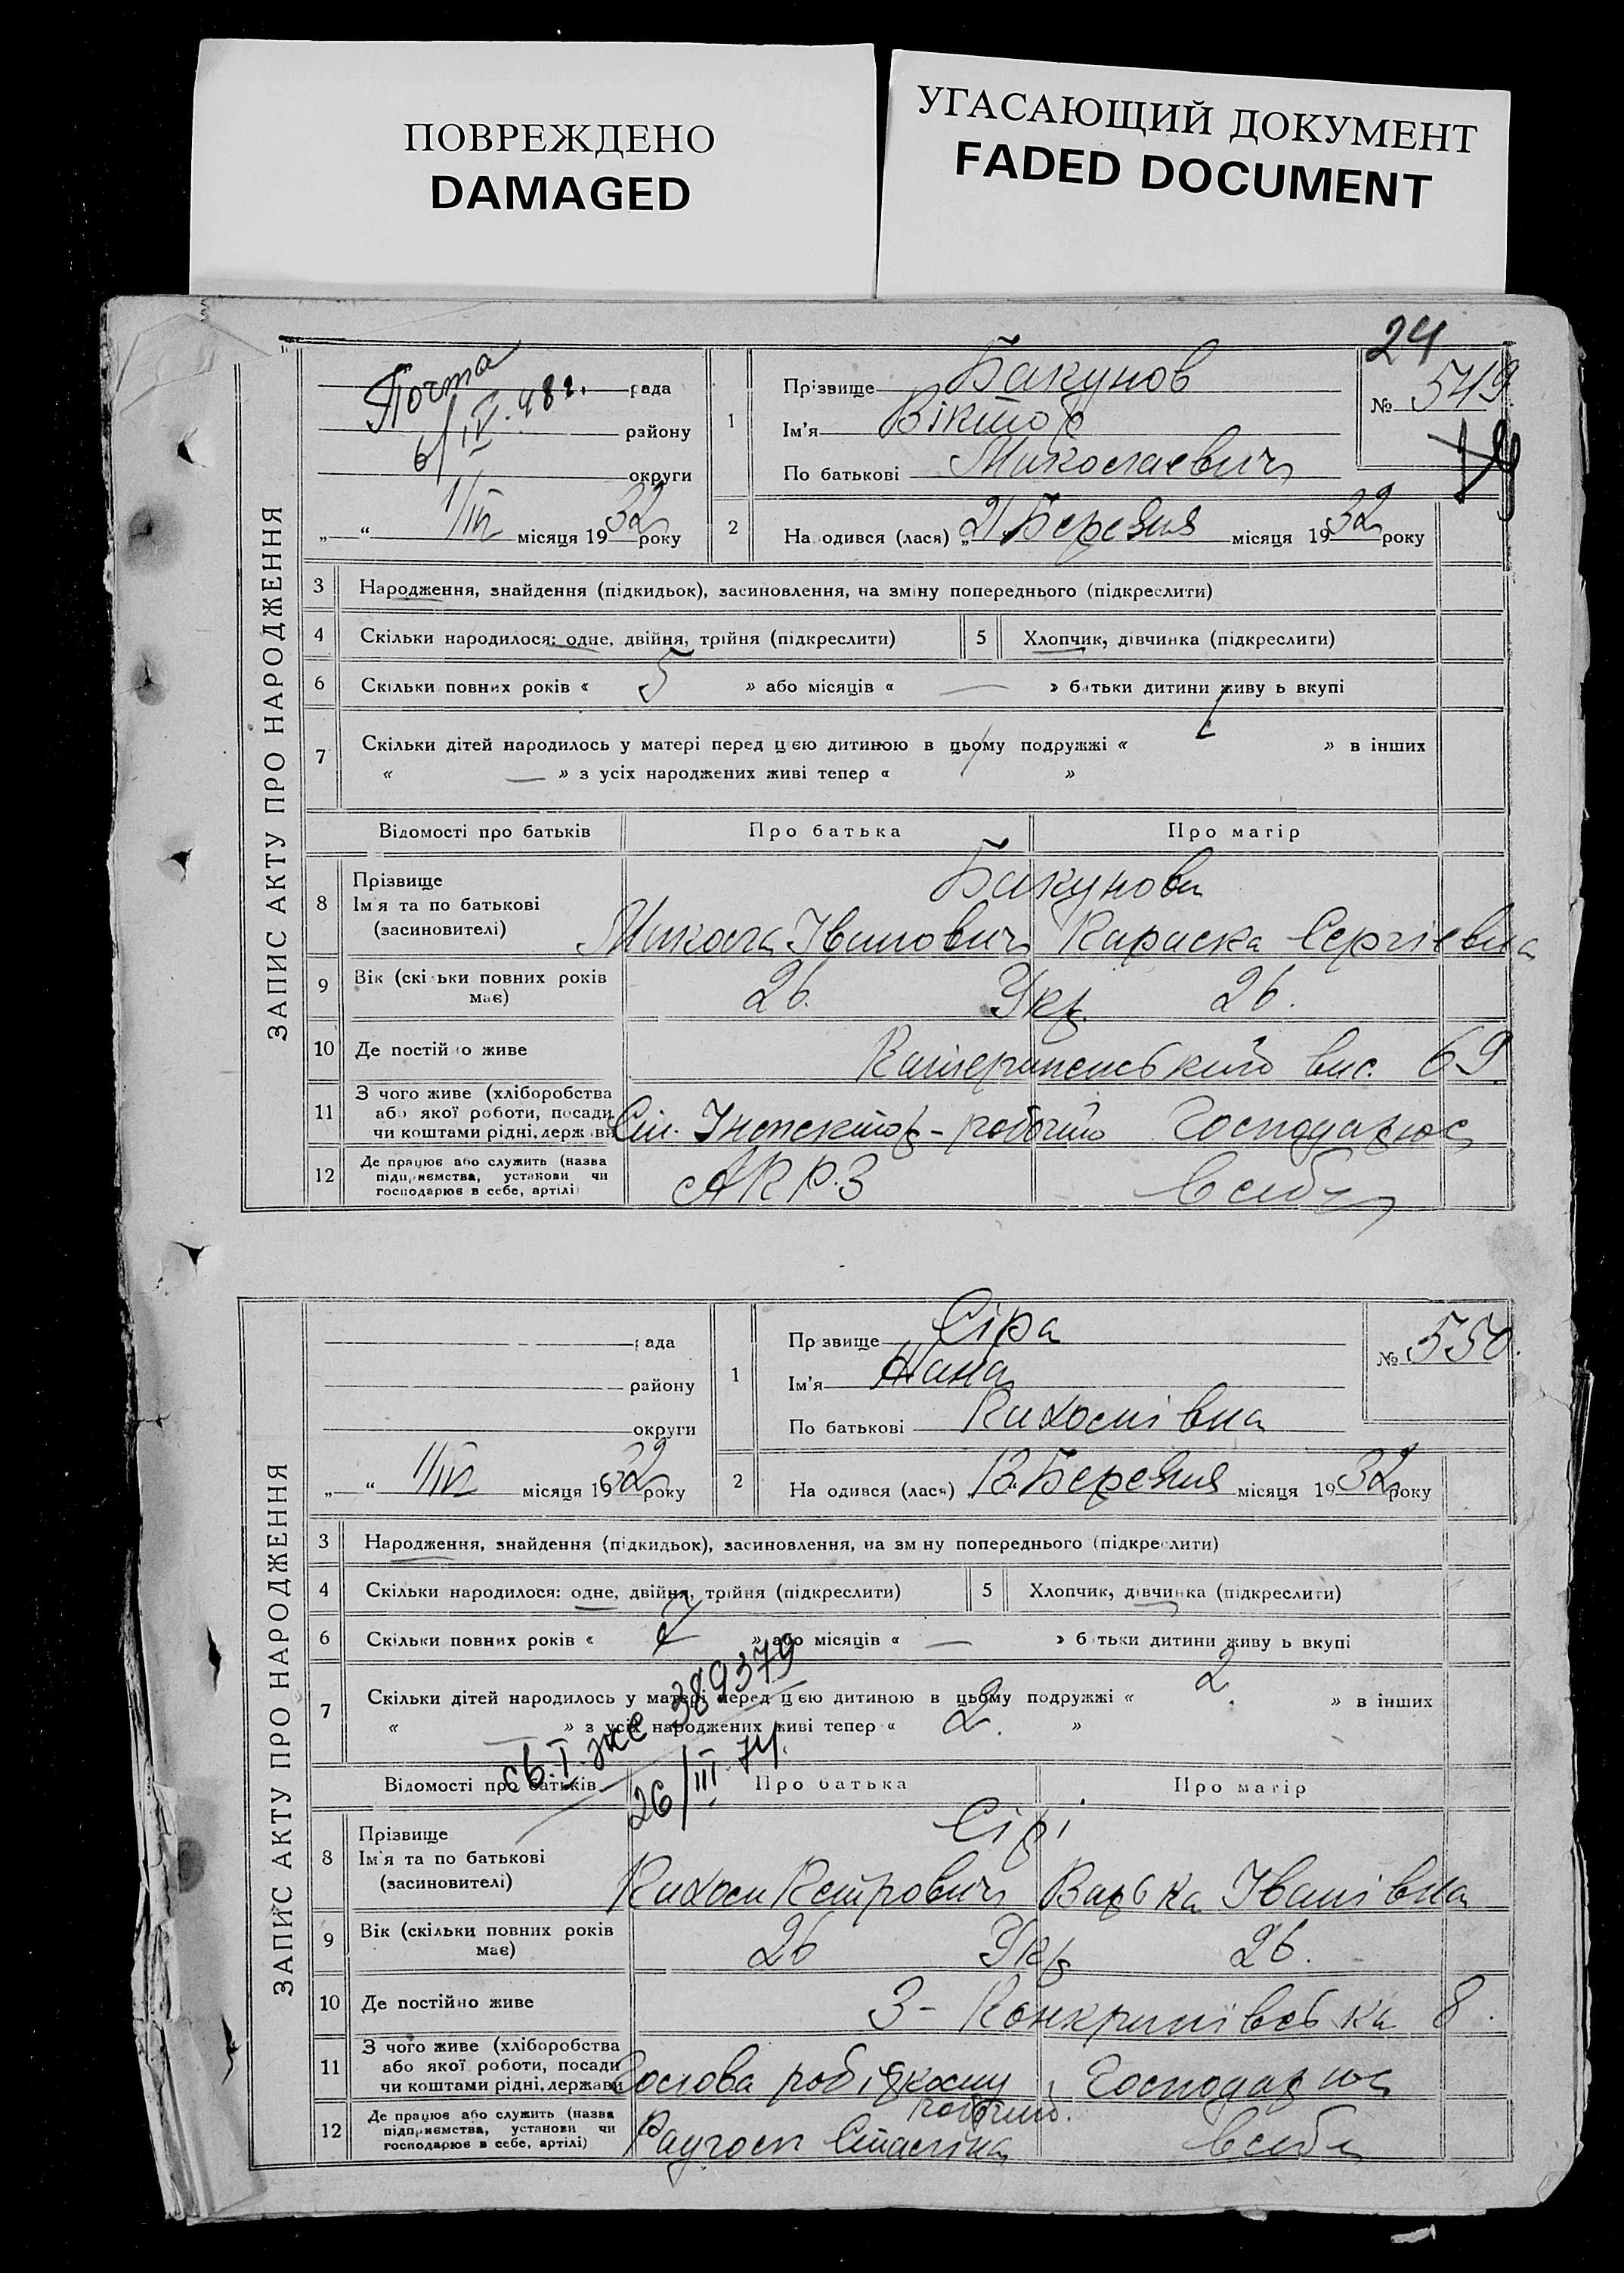 ПОВРЕЖДЕНО
DAMAGED
УГАСАЮЩИЙ ДОКУМЕНТ
FADED DOCUMENT
24
ЗАПИС АКТУ ПРО НАРОДЖЕННЯ
Почта
6/IV.48г.
рада
району
округи
„ “ 1/IV місяця 1932 року
1 Прізвище Бакунов
Ім'я Віктор
По батькові Миколаевич
№ 549
2 Народився (лася) „21 Березня місяця 1932 року
3 Народження, знайдення (підкидьок), засиновлення, на зміну попереднього (підкреслити)
4 Скільки народилося: одне, двійня, трійня (підкреслити) 5 Хлопчик, дівчинка (підкреслити)
6 Скільки повних років « 5 » або місяців « — » батьки дитини живу ь вкупі
7 Скільки дітей народилось у матері перед цією дитиною в цьому подружжі « » в інших
« — » з усіх народжених живі тепер « »
Відомості про батьків Про батька Про матір
8 Прізвище
Ім'я та по батькові
(засиновителі)
Бакунови
Микола Іванович Сергіевна
9 Вік (скільки повних років має) 26. Укр. 26.
10 Де постійно живе вис. 69
11 З чого живе (хліборобства
або якої роботи, посади
чи коштами рідні, держави
Інспектор - робочий Господарює
12 Де працює або служить (назва
підприємства, установи чи
господарює в себе, артілі)
АКРЗ в себе
ЗАПИС АКТУ ПРО НАРОДЖЕННЯ
рада
району
округи
„ “ 1/IV місяця 1932 року
1 Прізвище Сіра
Ім'я
По батькові
№ 550.
2 Народився (лася) 13. Березня місяця 1932 року
3 Народження, знайдення (підкидьок), засиновлення, на зміну попереднього (підкреслити)
4 Скільки народилося: одне, двійня, трійня (підкреслити) 5 Хлопчик, дівчинка (підкреслити)
6 Скільки повних років « » або місяців « — » батьки дитини живу ь вкупі
7 Скільки дітей народилось у матері перед цією дитиною в цьому подружжі « 2 » в інших
« — » з усіх народжених живі тепер « 2. »
св. I же 389379
26/III 74.
Відомості про батьків Про батька Про матір
8 Прізвище
Ім'я та по батькові
(засиновителі)
Сірі
Петрович Варька Іванівна
9 Вік (скільки повних років має) 26 Укр 26.
10 Де постійно живе 8.
11 З чого живе (хліборобства
або якої роботи, посади
чи коштами рідні, держави
Голова робочий. Господарює
12 Де працює або служить (назва
підприємства, установи чи
господарює в себе, артілі)
Сталіна в себе